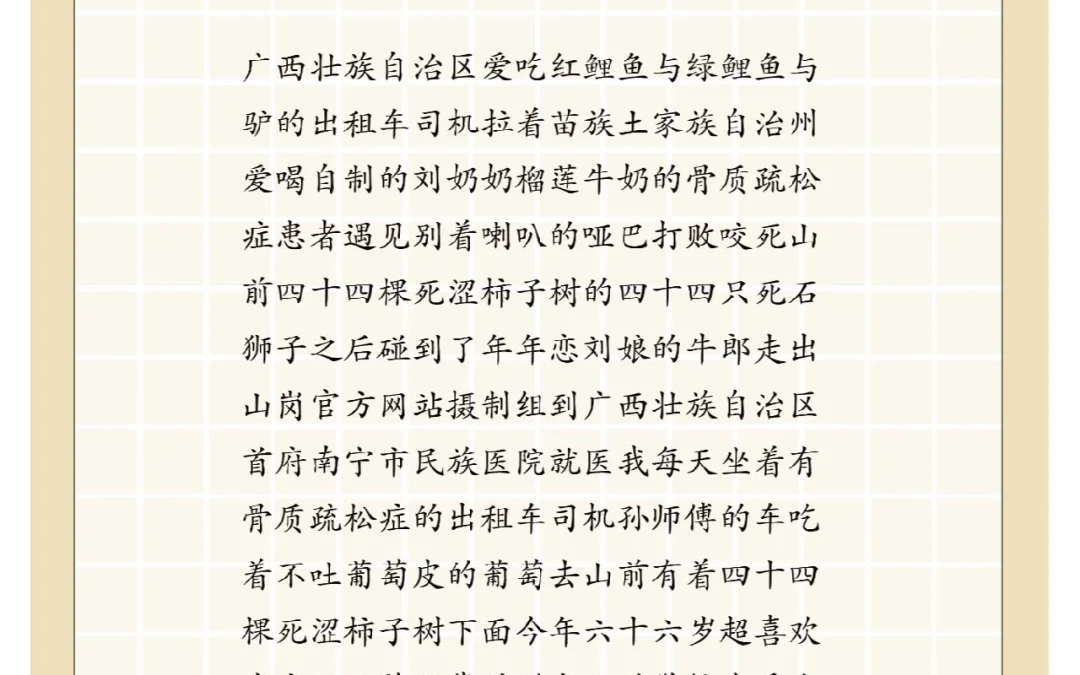 广西壮族自治区爱吃红鲤鱼与绿鲤鱼与
驴的出租车司机拉着苗族土家族自治州
爱喝自制的刘奶奶榴莲牛奶的骨质疏松
症患者遇见别着喇叭的哑巴打败咬死山
前四十四棵死涩柿子树的四十四只死石
狮子之后碰到了年年恋刘娘的牛郎走出
山岗官方网站摄制组到广西壮族自治区
首府南宁市民族医院就医我每天坐着有
骨质疏松症的出租车司机孙师傅的车吃
着不吐葡萄皮的葡萄去山前有着四十四
棵死涩柿子树下面今年六十六岁超喜欢